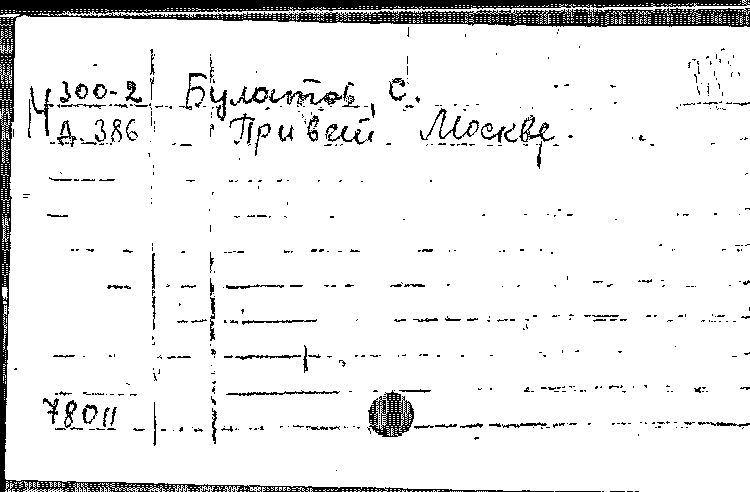 М 300-2 Булатов, С.
Д 386 Привет Москве.
78011